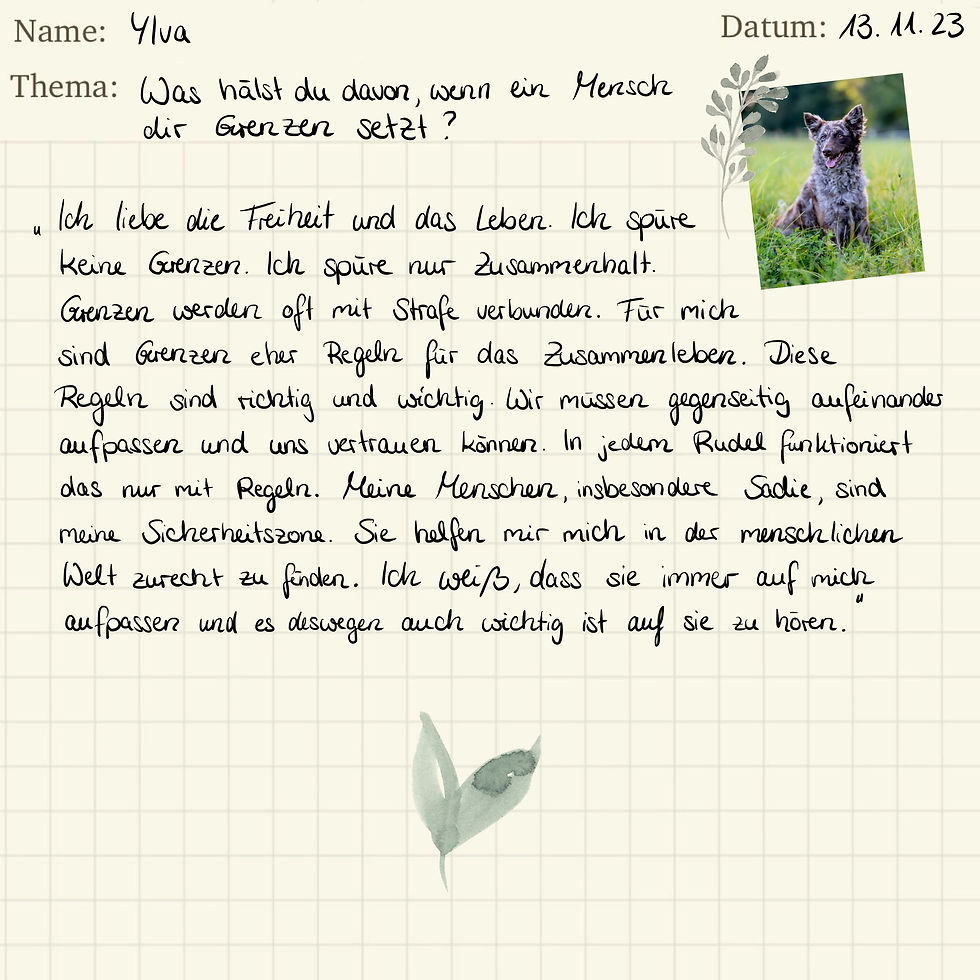 Name: Ylva
Datum: 13.11.23
Thema: Was hälst du davon, wenn ein Mensch
dir Grenzen setzt?
„Ich liebe die Freiheit und das Leben. Ich spüre
keine Grenzen. Ich spüre nur Zusammenhalt.
Grenzen werden oft mit Strafe verbunden. Für mich
sind Grenzen eher Regeln für das Zusammenleben. Diese
Regeln sind richtig und wichtig. Wir müssen gegenseitig aufeinander
aufpassen und uns vertrauen können. In jedem Rudel funktioniert
das nur mit Regeln. Meine Menschen, insbesondere Sadie, sind
meine Sicherheitszone. Sie helfen mir mich in der menschlichen
Welt zurecht zu finden. Ich weiß, dass sie immer auf mich
aufpassen und es deswegen auch wichtig ist auf sie zu hören."